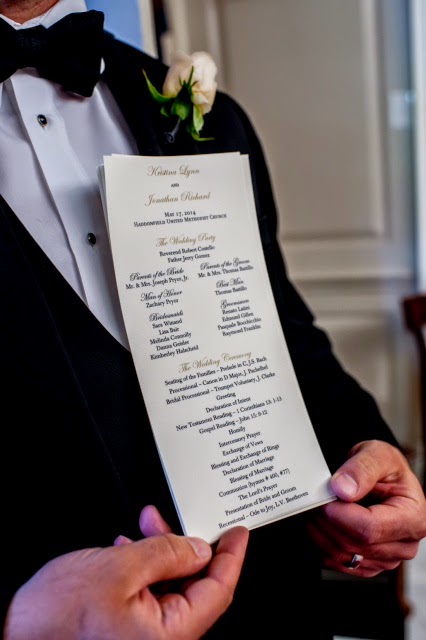 Kristina Lynn
AND
Jonathan Richard
May 17, 2014
Haddonfield United Methodist Church
The Wedding Party
Reverend Robert Costello
Father Jerry Gomez
Parents of the Bride
Mr. & Mrs. Joseph Pryor, Jr.
Parents of the Groom
Mr. & Mrs. Thomas Bastillo
Man of Honor
Zachary Pryor
Best Man
Thomas Bastillo
Bridesmaids
Sara Winand
Lisa Bair
Melinda Connolly
Danna Geisler
Kimberly Halscheid
Groomsmen
Renato Latini
Edmund Gilles
Pasquale Bocchicchio
Raymond Franklin
The Wedding Ceremony
Seating of the Families – Prelude in C, J.S. Bach
Processional – Canon in D Major, J. Pachelbel
Bridal Processional – Trumpet Voluntary, J. Clarke
Greeting
Declaration of Intent
New Testament Reading – 1 Corinthians 13: 1-13
Gospel Reading – John 15: 9-12
Homily
Intercessory Prayer
Exchange of Vows
Blessing and Exchange of Rings
Declaration of Marriage
Blessing of Marriage
Communion (hymns # 400, #77)
The Lord's Prayer
Presentation of Bride and Groom
Recessional – Ode to Joy, L.V. Beethoven